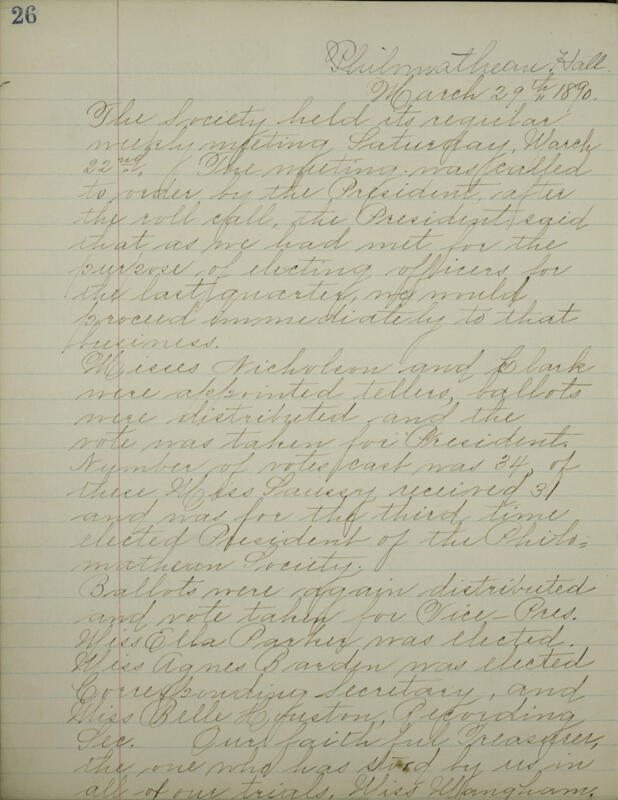 26
Philomathean Hall.
March 29th, 1890.
The Society held its regular
weekly meeting Saturday, March
22nd. The meeting was called
to order by the President, after
the roll call, the President said
that as we had met for the
purpose of electing officers for
the last quarter, we would
proceed immediately to that
business.
Misses Nicholson and Clark
were appointed tellers, ballots
were distributed and the
vote was taken for President.
Number of votes cast was 34, of
these Miss Saussy received 31
and was for the third time
elected President of the Philo=
mathean Society.
Ballots were again distributed
and vote taken for Vice-Pres.
Miss Ella Parker was elected.
Miss Agnes Bardin was elected
Corresponding Secretary, and
Miss Belle Houston, Recording
Sec. Our faithful Treasurer,
the one who has stood by us in
all of our trials, Miss Mangham.